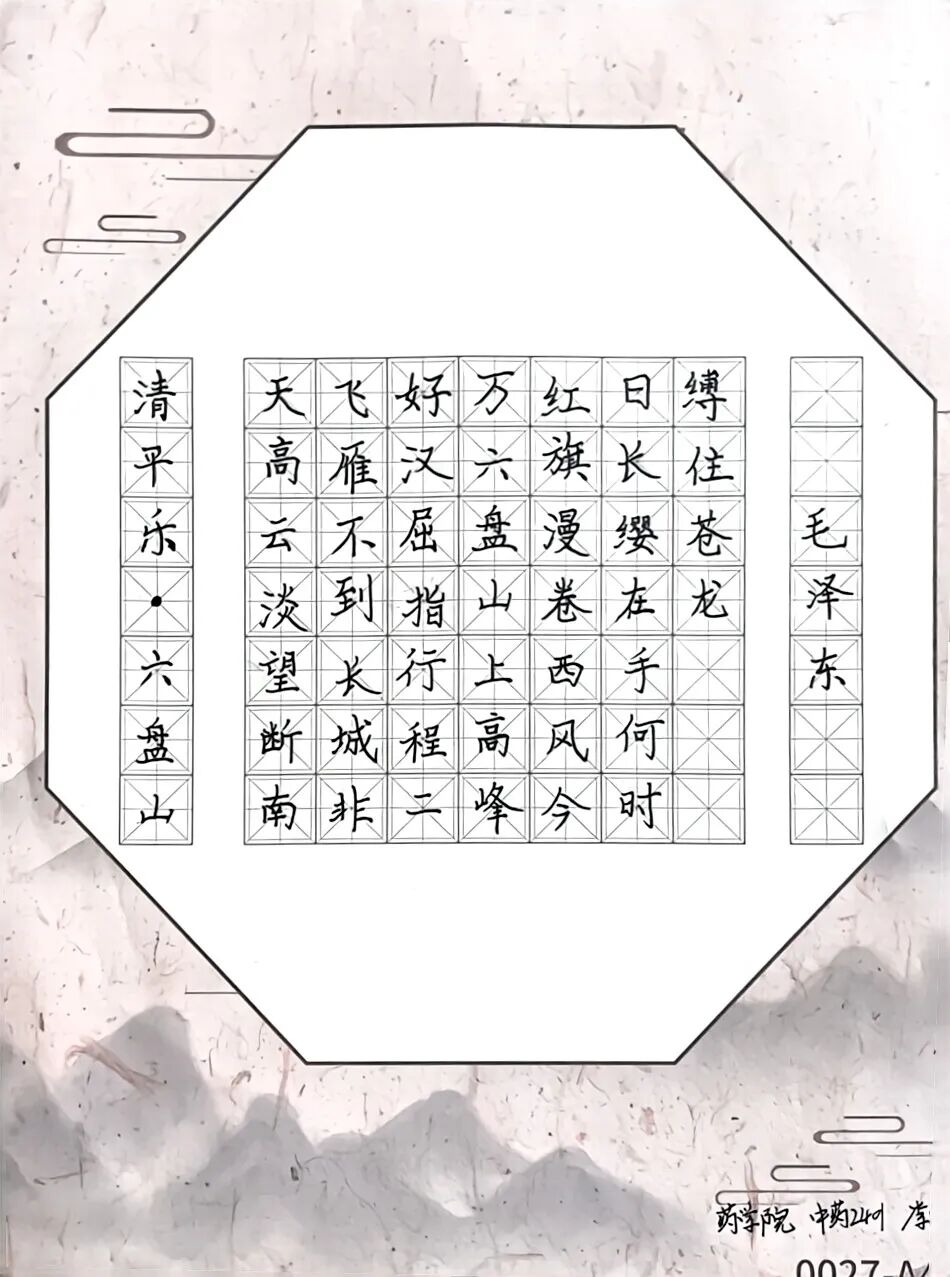 清平乐·六盘山
天高云淡望断南
飞雁不到长城非
好汉屈指行程二
万六盘山上高峰
红旗漫卷西风今
日长缨在手何时
缚住苍龙
毛泽东
药学院 中药2401
0027-A